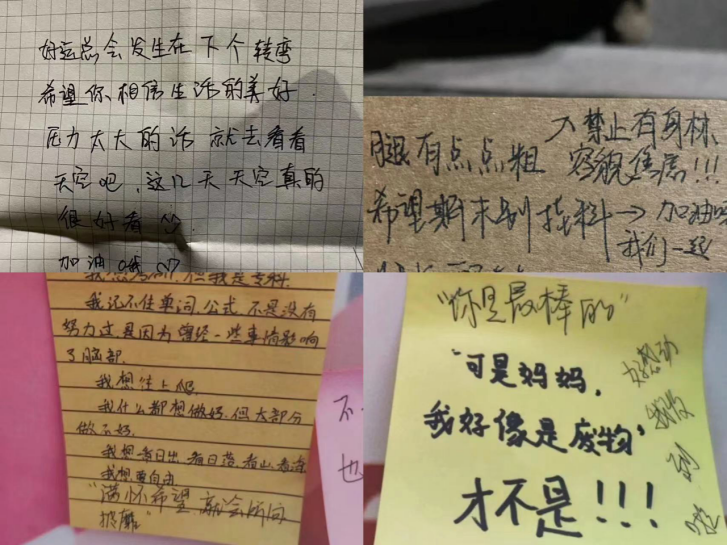 好运总会发生在下个转弯
希望你相信生活的美好.
压力太大的话 就去看看
天空吧,这几天天空真的
很好看
加油哦
腿有点点粗
禁止有身材、
容貌焦虑!!!
希望期末别挂科→加油
我们一起
但我是专科
我记不住单词,公式,不是没有
努力过,是因为曾经一些事情影响
了脑部.
我想往上爬
我什么都想做好,但大部分
做不好.
我想看日出,看日落,看山,看海
我想要自由
"满怀希望 就会所向
披靡"
不
也
"你是最棒的"
"可是妈妈,
我好像是废物"
才不是!!!